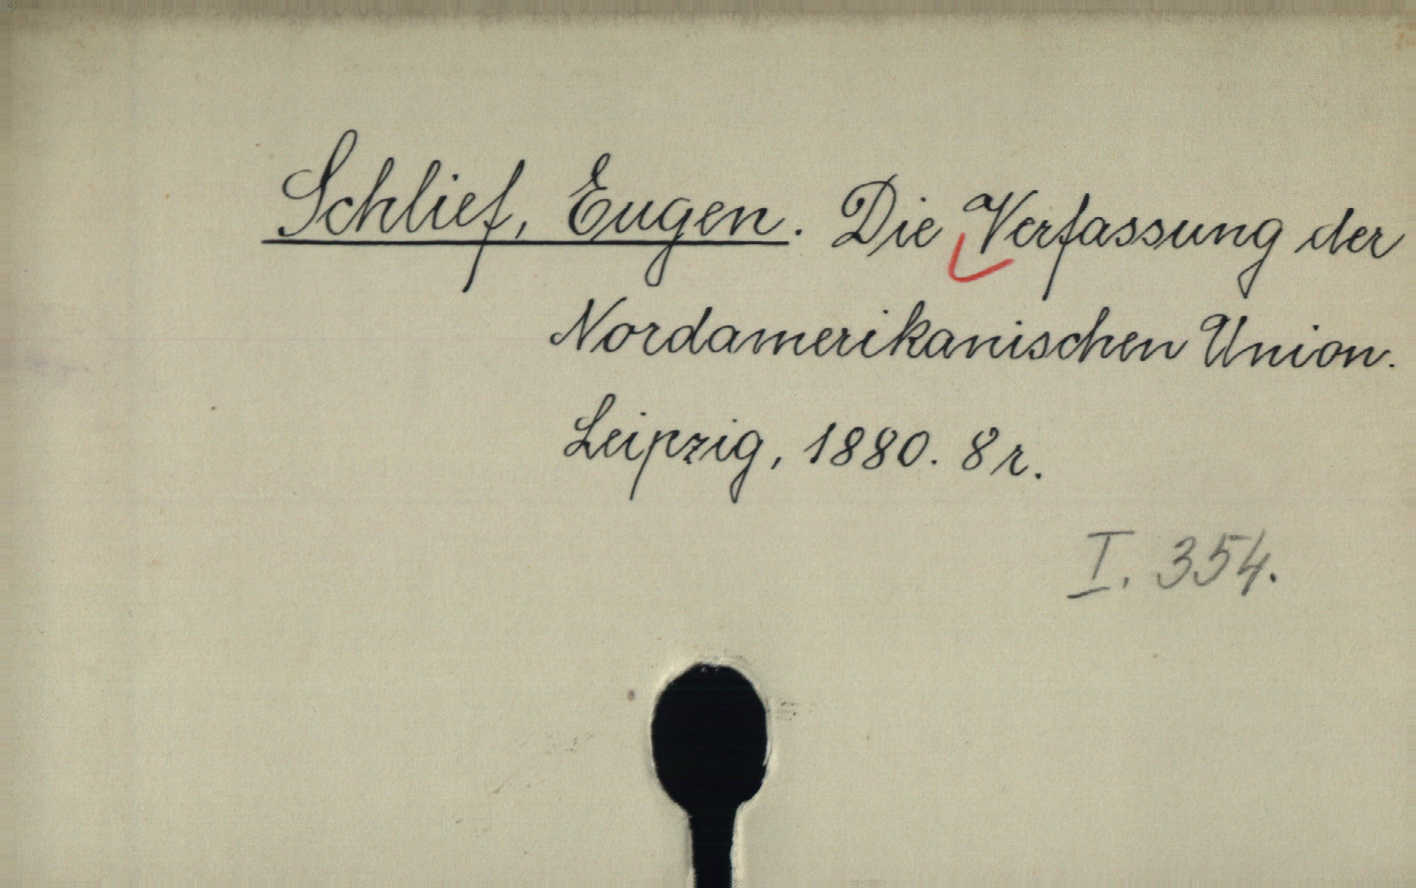 Schlief, Eugen. Die Verfassung der
Nordamerikanischen Union.
Leipzig, 1880. 8r.
I. 354.